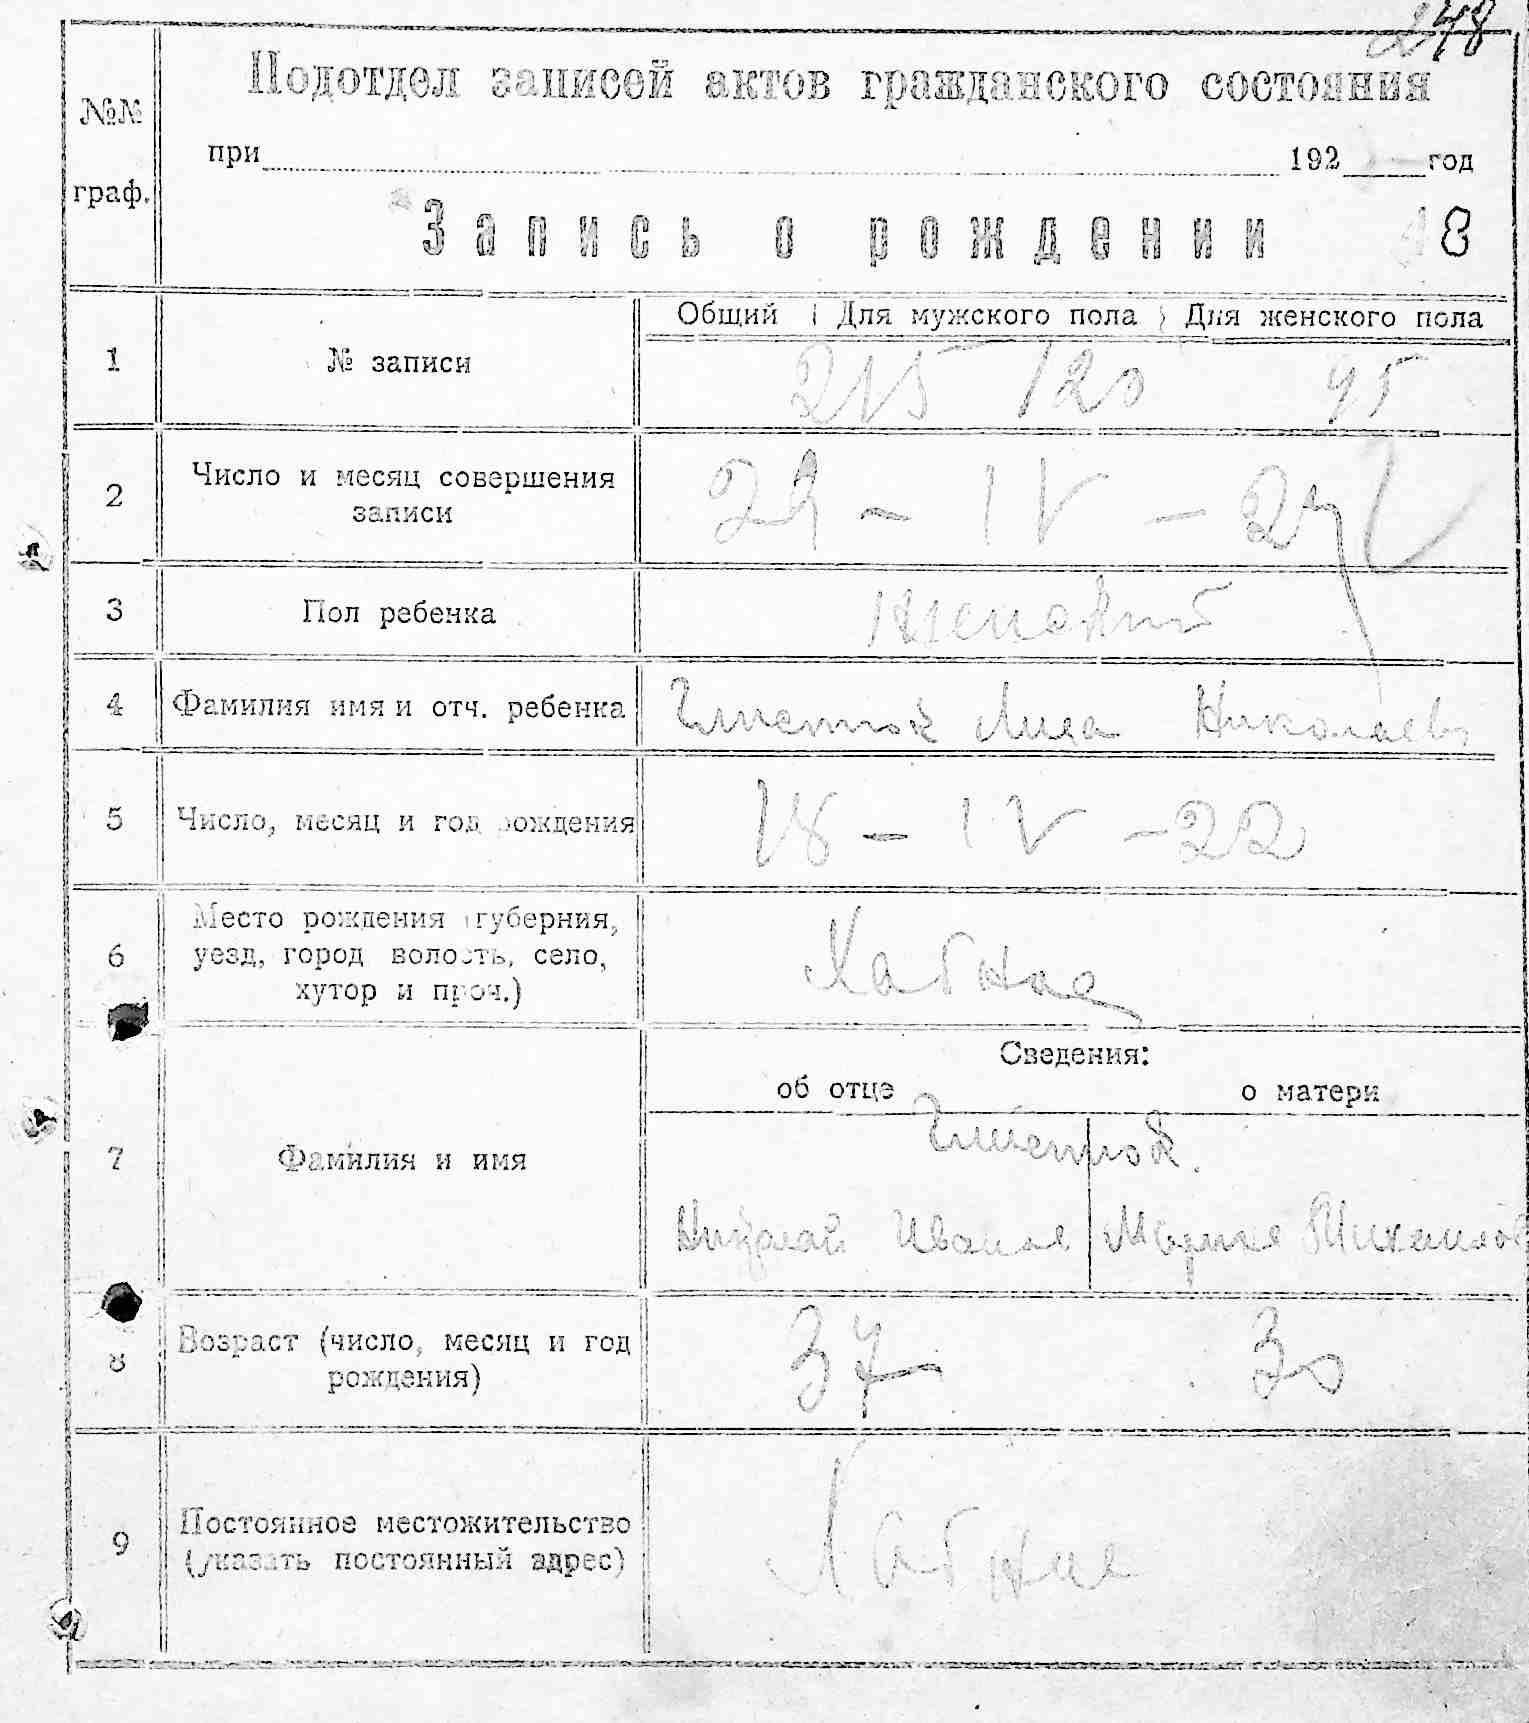 248
№№
граф.
Подотдел записей актов гражданского состояния
при 192 год
Запись о рождении
1
№ записи
Общий Для мужского пола Для женского пола
215 120 95
2
Число и месяц совершения
записи
29 - IV - 22
3
Пол ребенка
женский
4
Фамилия имя и отч. ребенка
Лиза Николаев
5
Число, месяц и год рождения
18 - IV - 22
6
Место рождения (губерния,
уезд, город волость, село,
хутор и проч.)
Хабное
Сведения:
об отце
о матери
7
Фамилия и имя
Николай Иванов
Мария Михайлов
8
Возраст (число, месяц и год
рождения)
37
30
9
Постоянное местожительство
(указать постоянный адрес)
Хабное